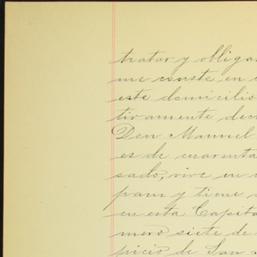 tratar y obliga
me conste, en
este domicilio
tivamente de
Don Manuel
es de cuarenta
sado, vive en
pam y tiene
en esta Capit
mero siete de
picio de San